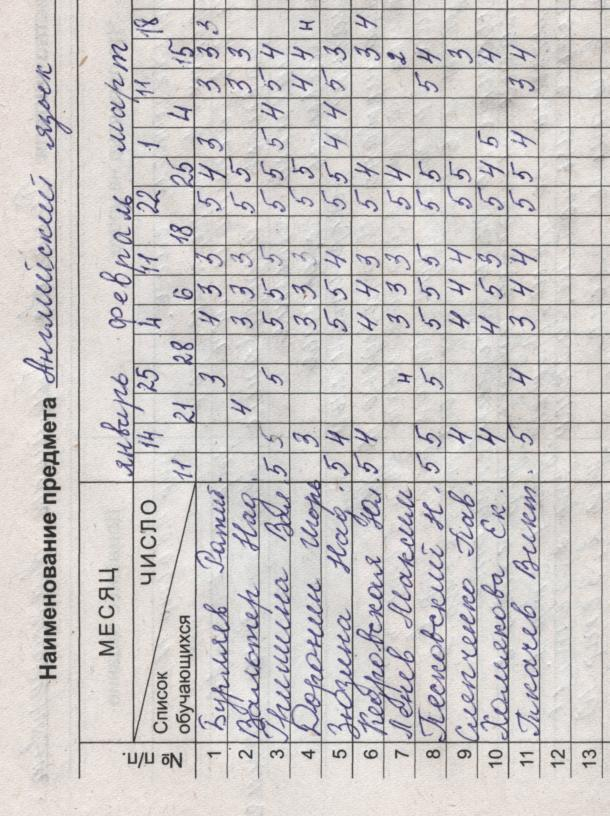 Наименование предмета Английский язык
МЕСЯЦ январь февраль март
№ п/п. Список обучающихся ЧИСЛО 11 14 21 25 28 4 6 11 18 22 25 1 4 11 15 18
1 3 4 3 3 5 4 3 3 3 3
2 Вальтер Над. 4 3 3 3 5 5 3 3
3 Гришина Вал. 5 5 5 5 5 5 5 5 5 4 5 4
4 Доронин Игорь 3 3 3 3 5 5 4 4 н
5 Зюзина Над. 5 4 5 5 4 5 5 4 4 5 3
6 Кедровская Юл. 5 4 4 4 3 5 4 3 4
7 Максим н 3 3 3 5 4 2
8 Песковский Н. 5 5 5 5 5 5 5 5 5 4
9 Слепченко Пав. 4 4 4 4 5 5 3
10 Холмякова Ек. 4 4 5 3 5 4 5 4
11 Ткачев Викт. 5 4 3 4 4 5 5 4 3 4
12
13